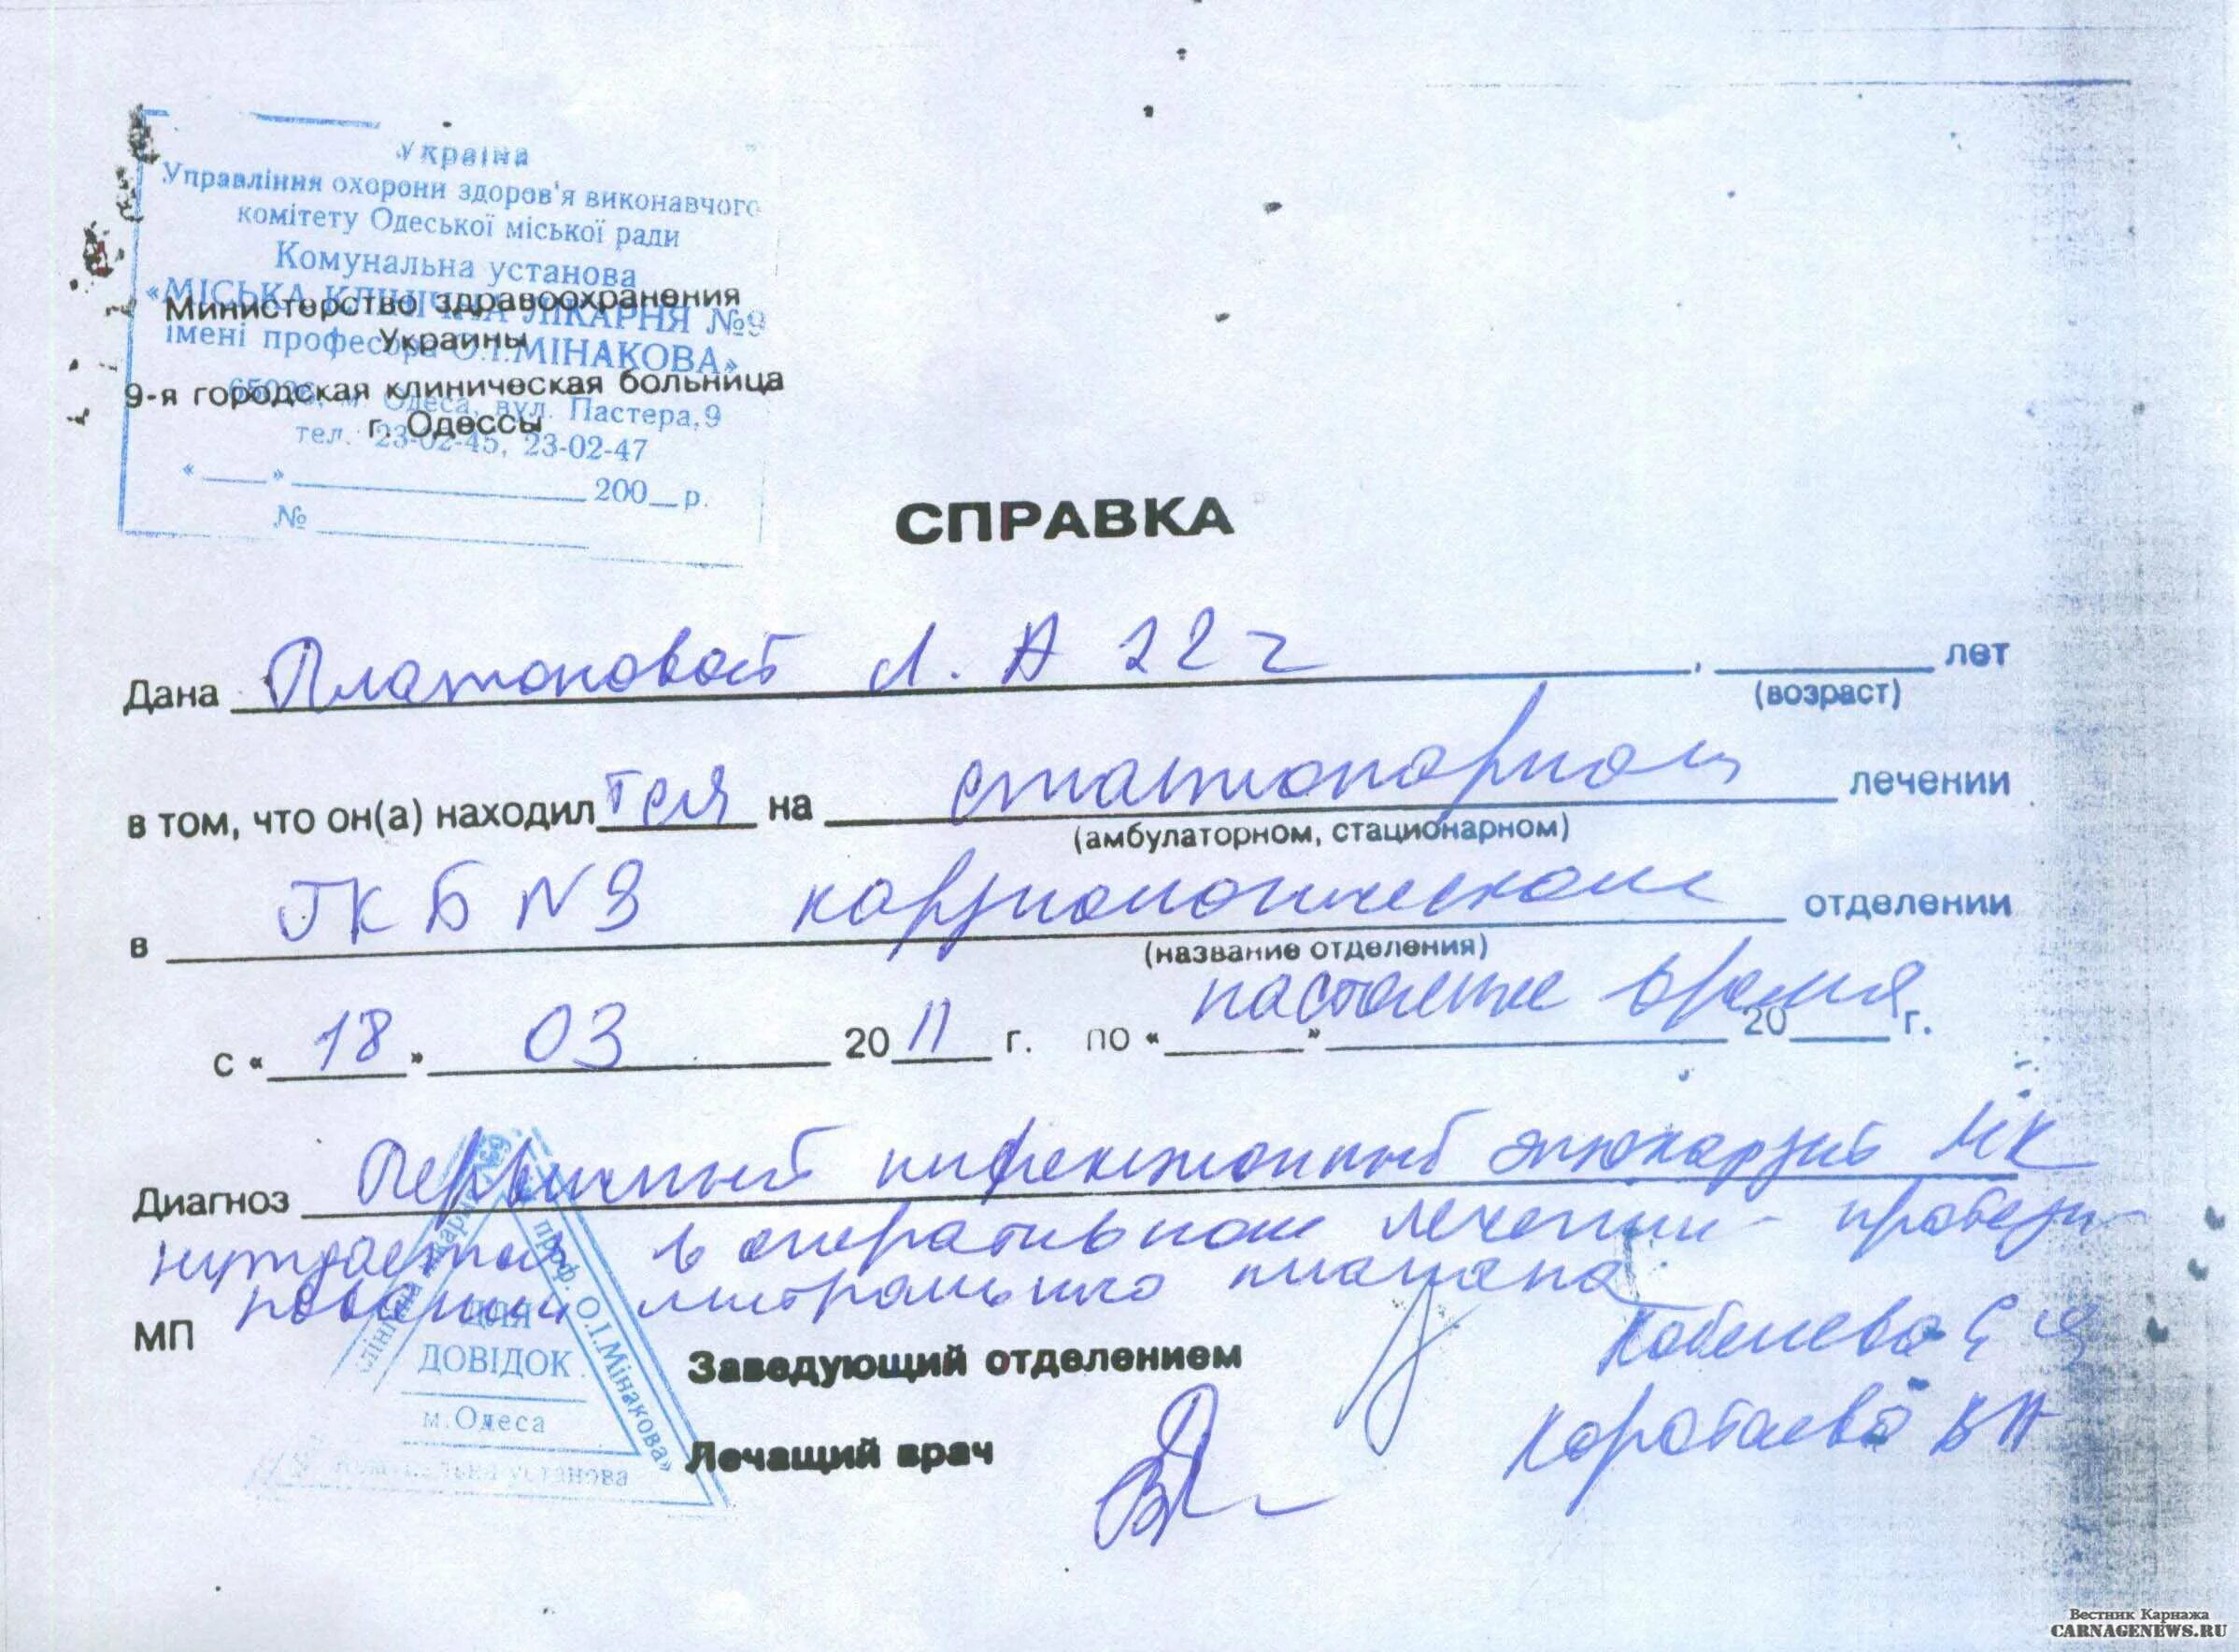 Україна
Управління охорони здоров'я виконавчого
комітету Одеської міської ради
Комунальна установа
«МІСЬКА КЛІНІЧНА ЛІКАРНЯ №9
імені професора О.І.МІНАКОВА»
м. Одеса, вул. Пастера,9
тел. 23-02-45, 23-02-47
«___»____________200__р.
№ ____________
Министерство здравоохранения
Украины
9-я городская клиническая больница
г. Одессы
СПРАВКА
Дана Платоновой Л. А 22 г , ______ лет
(возраст)
в том, что он(а) находил тся на стационарном лечении
(амбулаторном, стационарном)
в ГКБ N 9 кардиологическом отделении
(название отделения)
с « 18 » 03 20 11 г. по « » настоящее время 20 г.
Диагноз Первичный инфекционный эндокардит МК
нуждается в оперативном лечении - протези-
ровании митрального клапана
МП
ДЛЯ
ДОВІДОК
м.Одеса
проф. О.І.Мінакова»
Комунальна установа
Заведующий отделением Кобелева Е
Лечащий врач Коротаева В А
Вестник Карнажа
CARNAGENEWS.RU